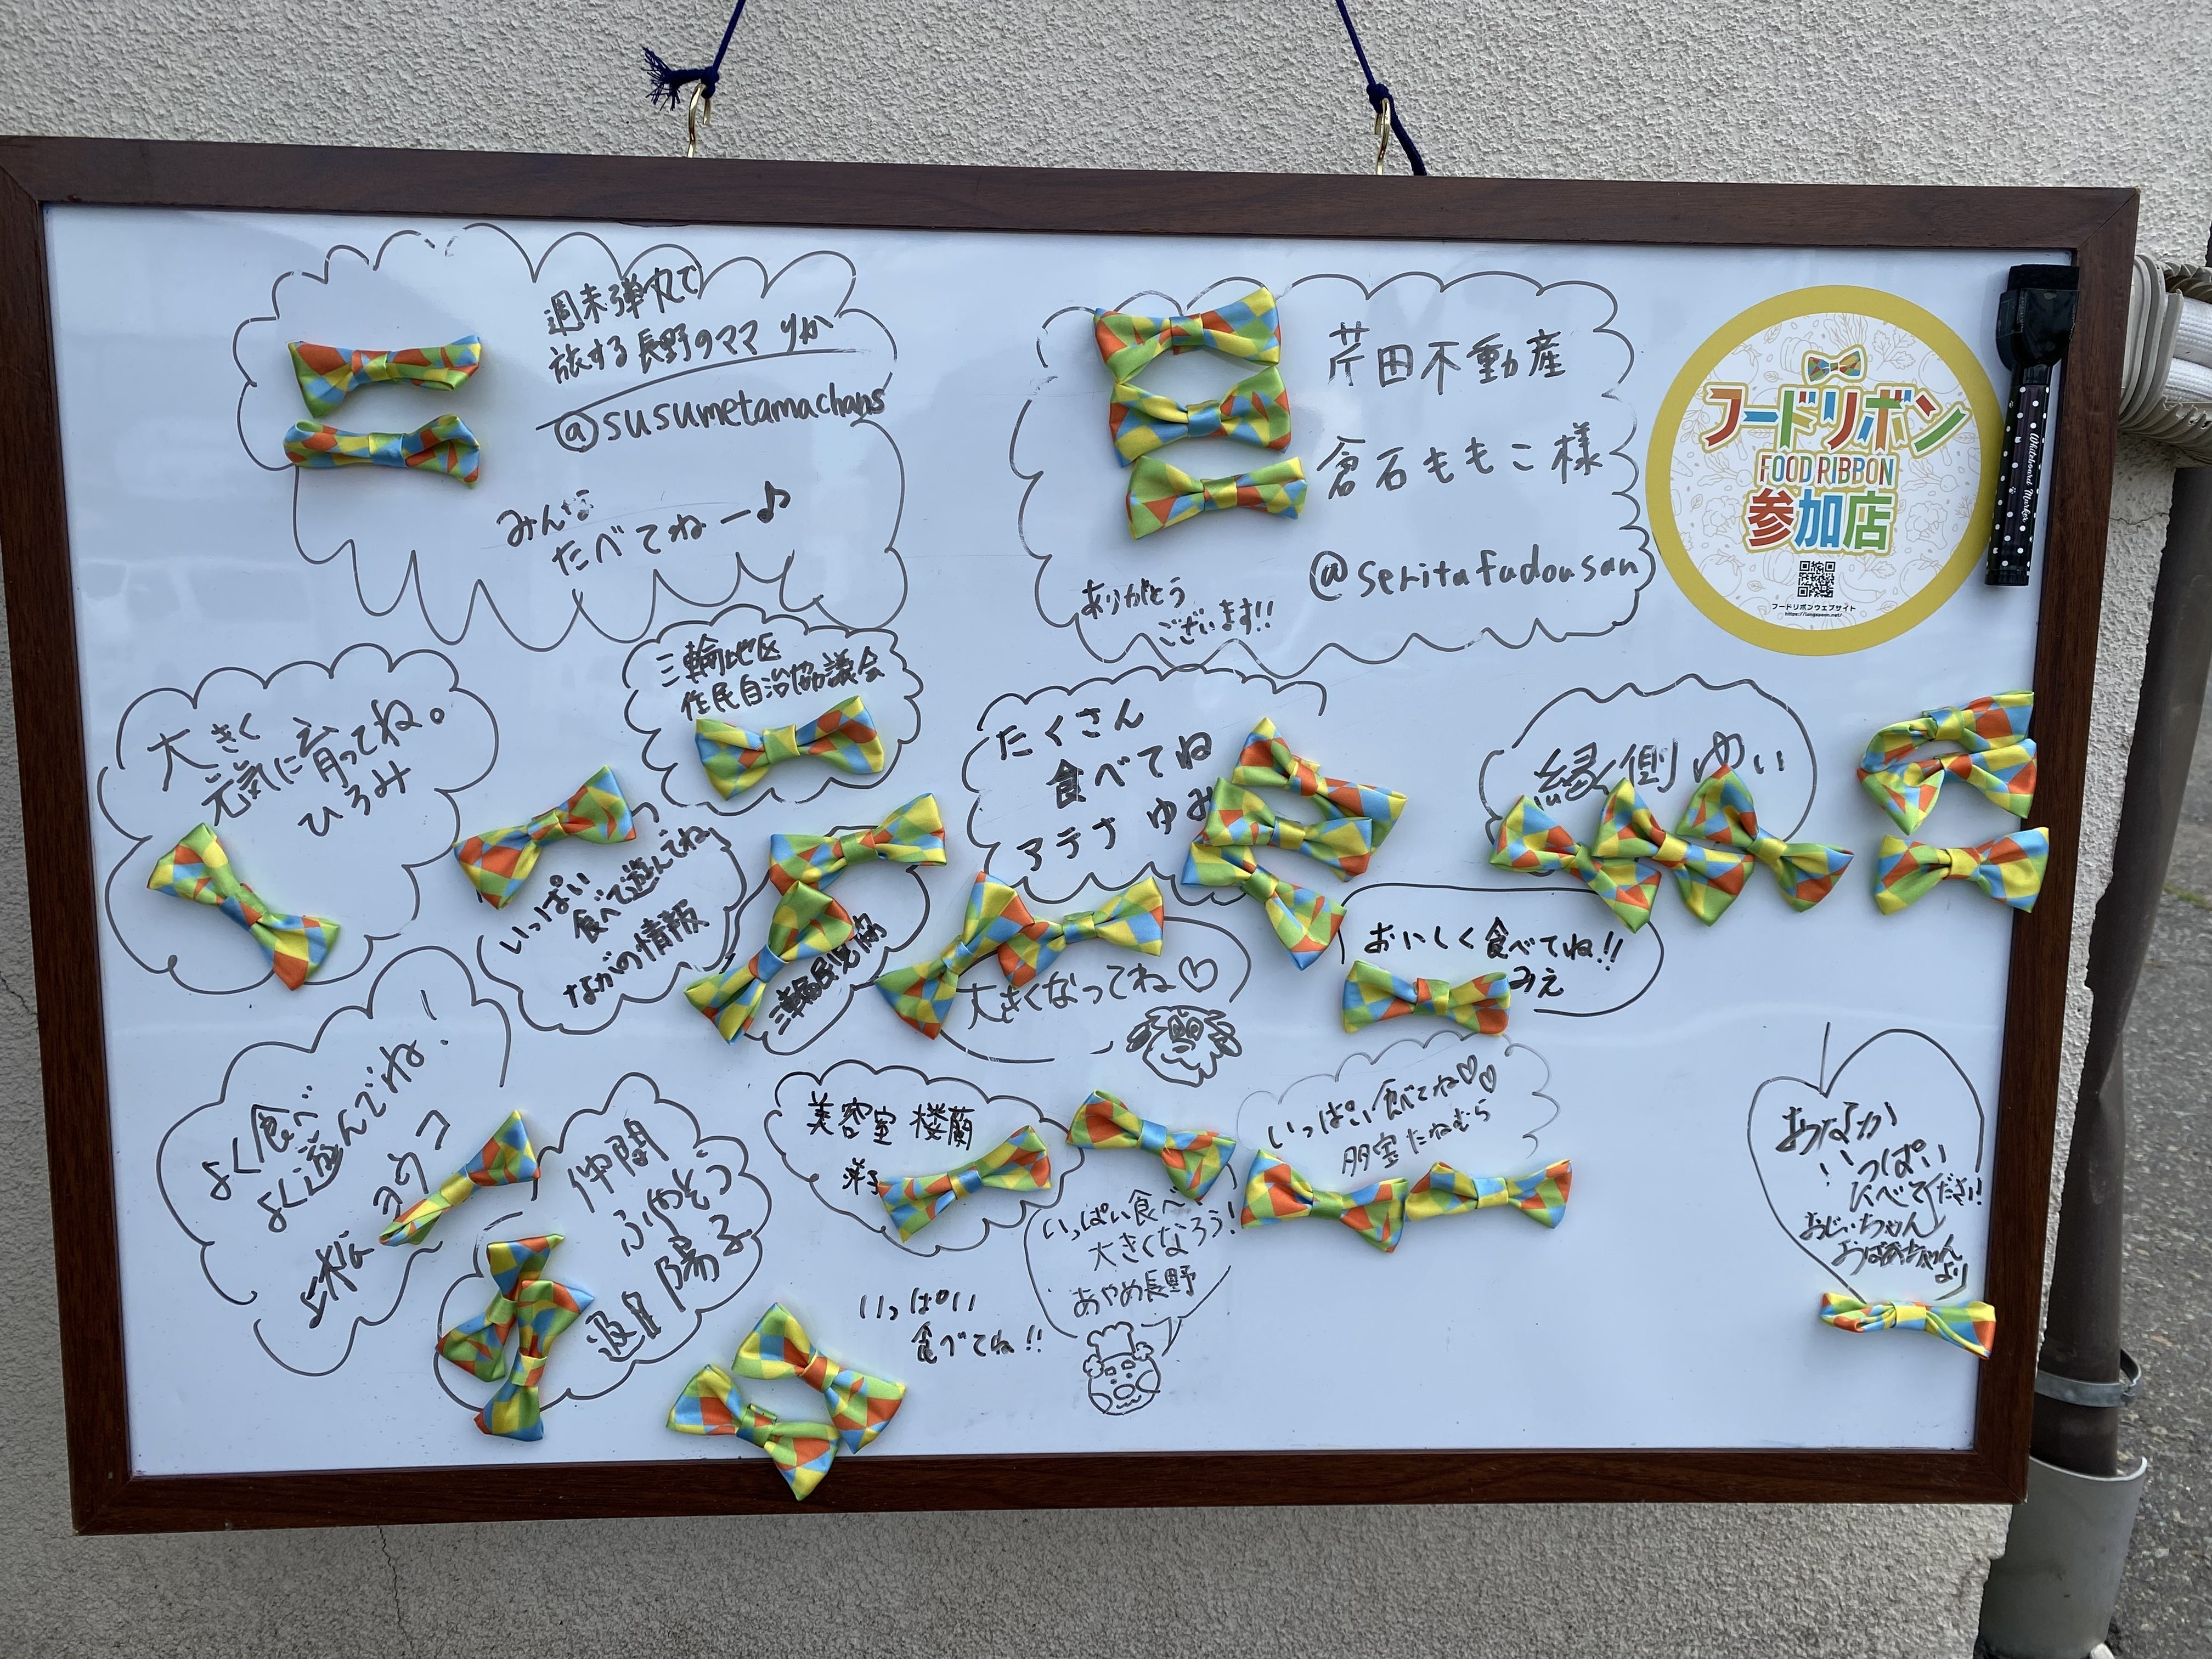 週末弾丸で
旅する長野のママ りか
@susumetamachans
みんな
たべてねー♪
芹田不動産
倉石ももこ様
@seritafudousan
ありがとう
ございます!!
フードリボン
FOOD RIBBON
参加店
フードリボンウェブサイト
Whiteboard Marker
大きく
元気に育ってね。
ひろみ
三輪地区
住民自治協議会
いっぱい
食べて遊んでね
ながの情報
三輪民児協
たくさん
食べてね
アテナ ゆみ
縁側 ゆい
大きくなってね♡
おいしく食べてね!!
みえ
よく食べ
よく遊んでね!
上松 ヨウコ
仲間
ふやそう
陽子
美容室 楼蘭
いっぱい食べ
大きくなろう!
あやめ長野
いっぱい食べてね♡♡
朋宝たねむら
いっぱい
食べてね!!
おなか
いっぱい
たべてください!
おじいちゃん
おばあちゃん
より